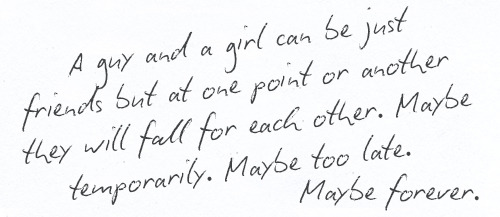 A guy and a girl can be just
friends but at one point or another
they will fall for each other. Maybe
temporarily. Maybe too late.
Maybe forever.